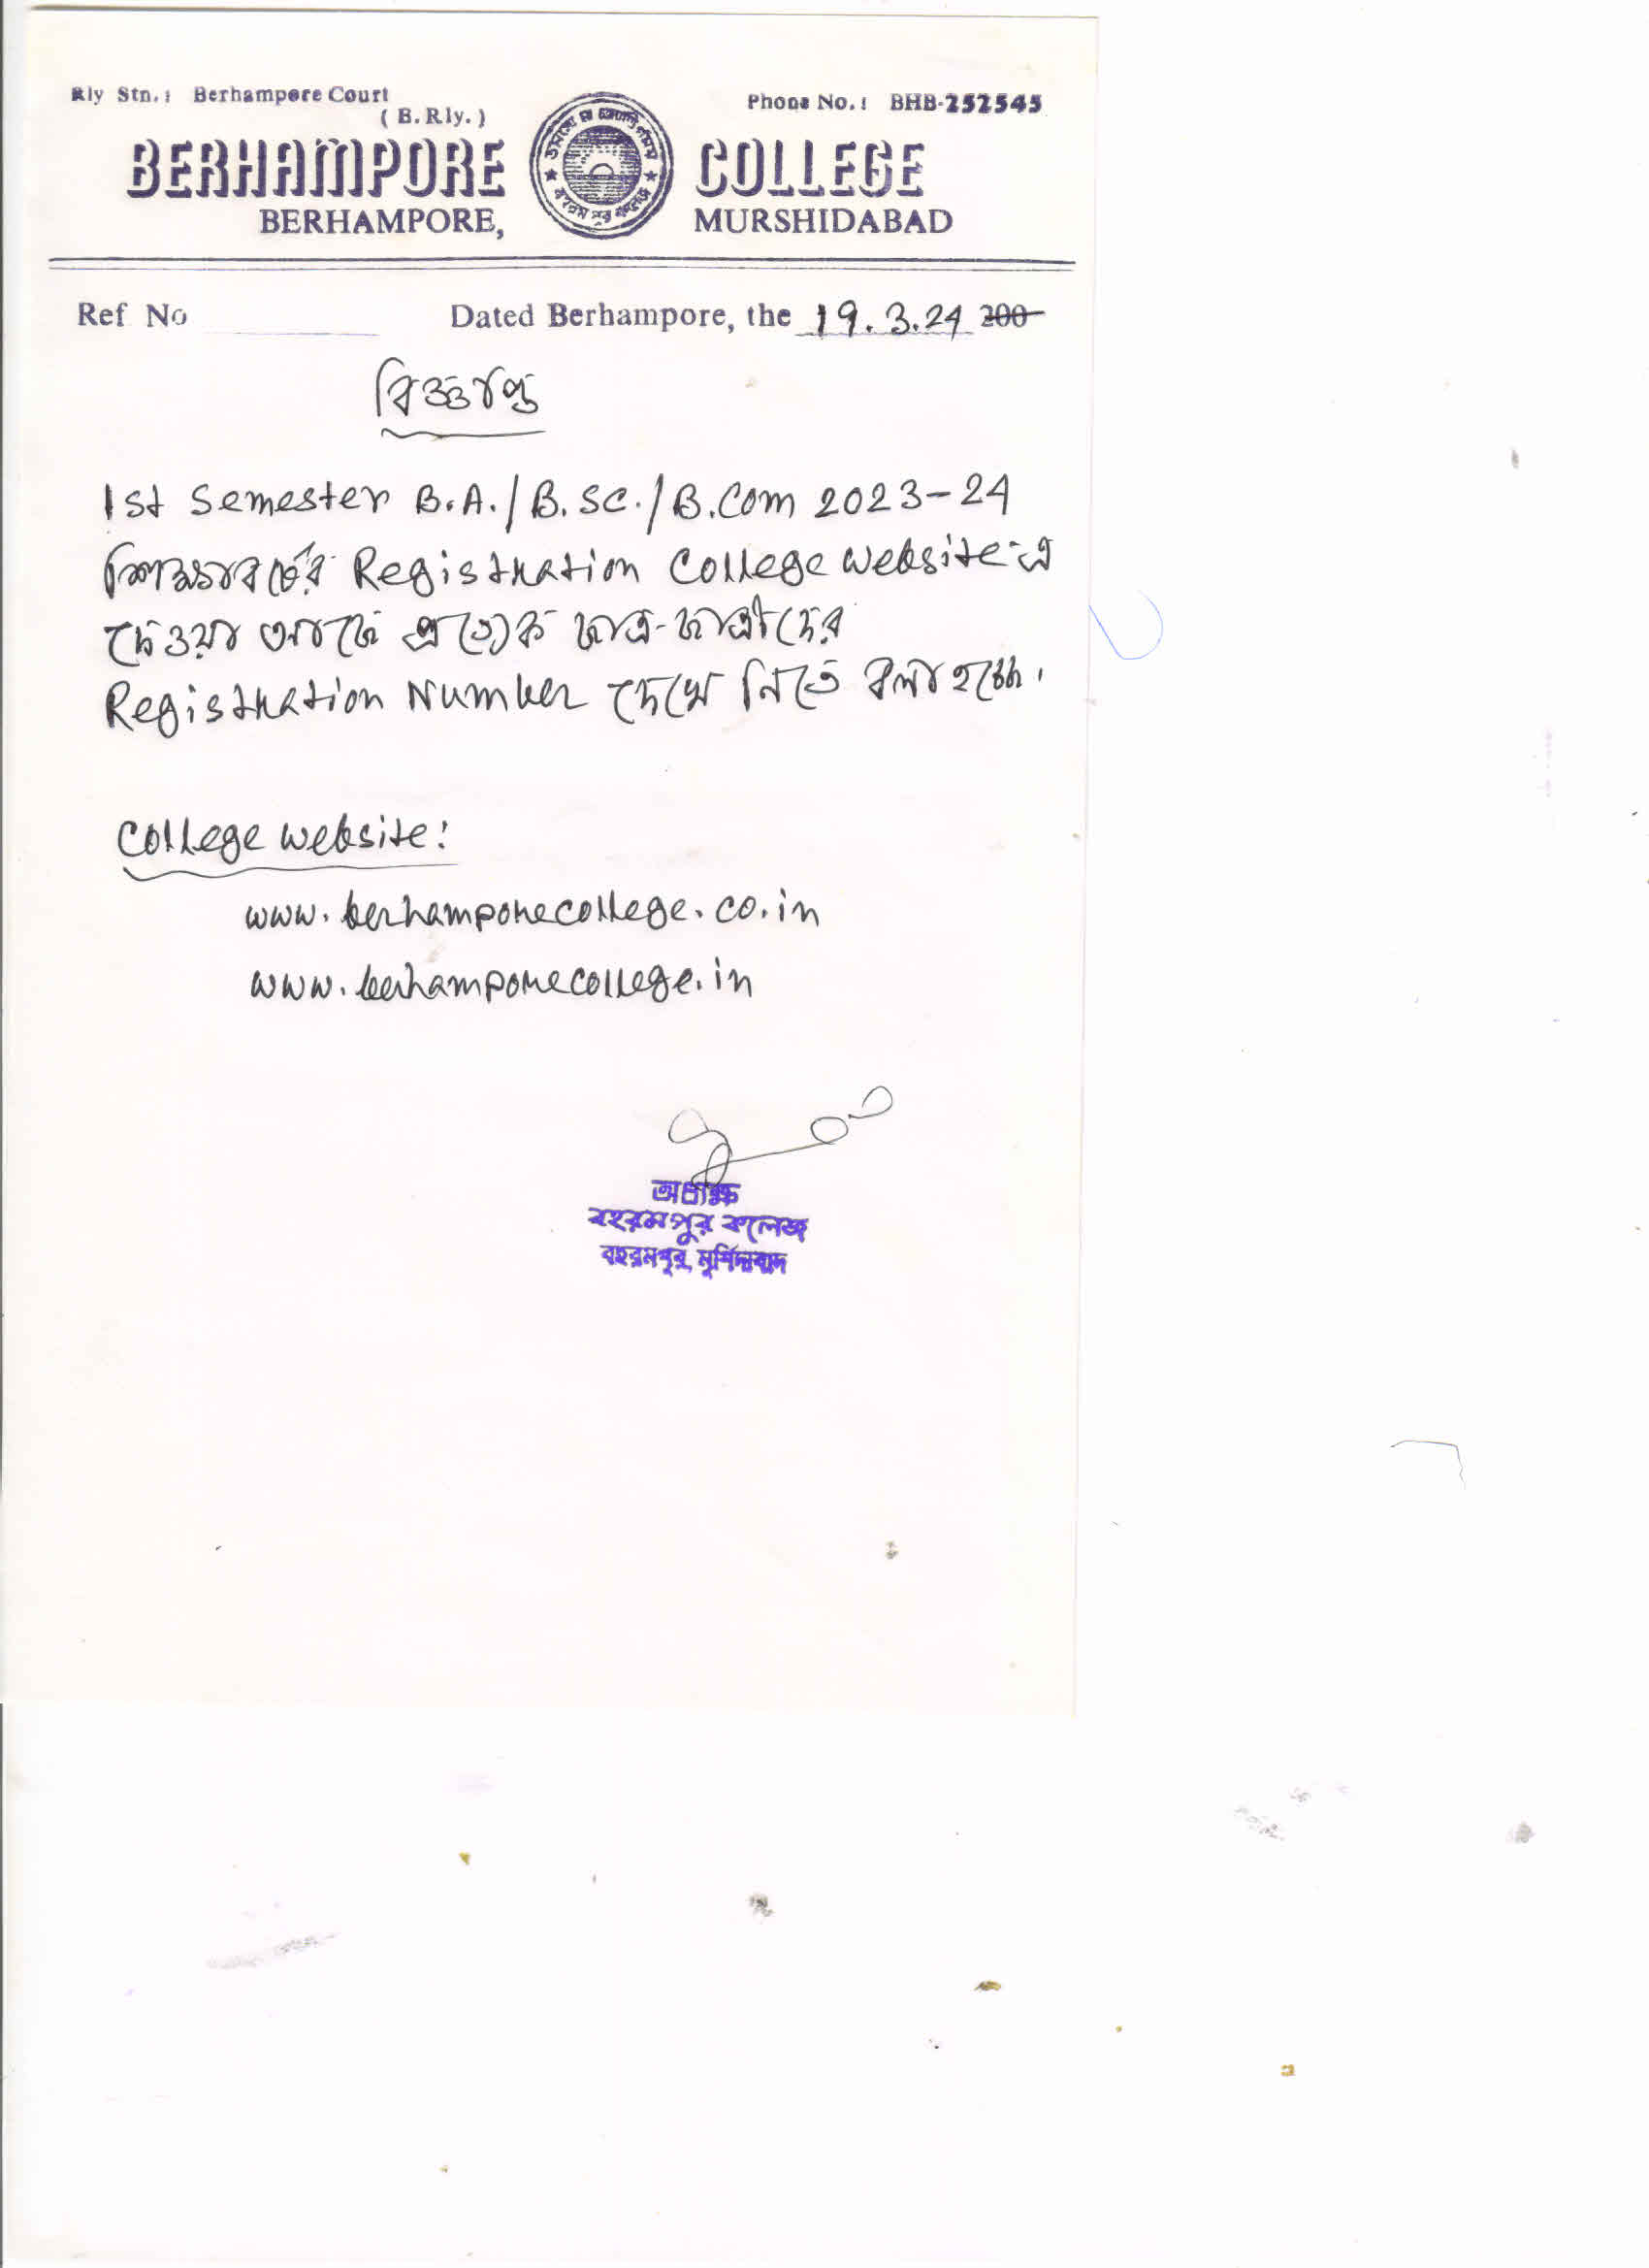 Rly Stn. : Berhampore Court
( E. Rly. )
Phone No. : BHB-252545
BERHAMPORE COLLEGE
BERHAMPORE, MURSHIDABAD
বহরমপুর কলেজ
Ref No Dated Berhampore, the 19.3.24 200
বিজ্ঞপ্তি
1st Semester B.A./B.Sc./B.Com 2023-24
শিক্ষাবর্ষের Registration College Website-এ
দেওয়া আছে প্রত্যেক ছাত্র-ছাত্রীদের
Registration Number দেখে নিতে বলা হচ্ছে।
College Website:
www.berhamporecollege.co.in
www.berhamporecollege.in
অধ্যক্ষ
বহরমপুর কলেজ
বহরমপুর, মুর্শিদাবাদ